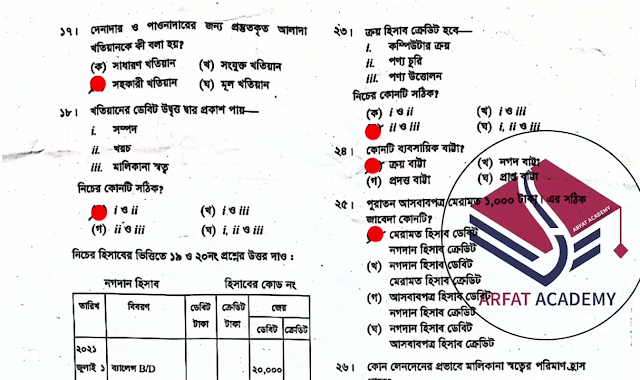 ১৭। দেনাদার ও পাওনাদারের জন্য প্রস্তুতকৃত আলাদা
খতিয়ানকে কী বলা হয়?
(ক) সাধারণ খতিয়ান (খ) সংযুক্ত খতিয়ান
সহকারী খতিয়ান (ঘ) মূল খতিয়ান
১৮। খতিয়ানের ডেবিট উদ্বৃত্ত দ্বার প্রকাশ পায়—
i. সম্পদ
ii. খরচ
iii. মালিকানা স্বত্ব
নিচের কোনটি সঠিক?
i ও ii (খ) i ও iii
(গ) ii ও iii (ঘ) i, ii ও iii
নিচের হিসাবের ভিত্তিতে ১৯ ও ২০নং প্রশ্নের উত্তর দাও :
নগদান হিসাব হিসাবের কোড নং
তারিখ বিবরণ ডেবিট টাকা ক্রেডিট টাকা জের
ডেবিট ক্রেডিট
২০২১
জুলাই ১ ব্যালেন্স B/D ২০,০০০
২৩। ক্রয় হিসাব ক্রেডিট হবে—
i. কম্পিউটার ক্রয়
ii. পণ্য চুরি
iii. পণ্য উত্তোলন
নিচের কোনটি সঠিক?
(ক) i ও ii (খ) i ও iii
ii ও iii (ঘ) i, ii ও iii
২৪। কোনটি ব্যবসায়িক বাট্টা?
ক্রয় বাট্টা (খ) নগদ বাট্টা
(গ) প্রদত্ত বাট্টা (ঘ) প্রাপ্ত বাট্টা
২৫। পুরাতন আসবাবপত্র মেরামত ১,০০০ টাকা। এর সঠিক
জাবেদা কোনটি?
মেরামত হিসাব ডেবিট
নগদান হিসাব ক্রেডিট
(খ) নগদান হিসাব ডেবিট
মেরামত হিসাব ক্রেডিট
(গ) আসবাবপত্র হিসাব ডেবিট
নগদান হিসাব ক্রেডিট
(ঘ) নগদান হিসাব ডেবিট
আসবাবপত্র হিসাব ক্রেডিট
২৬। কোন লেনদেনের প্রভাবে মালিকানা স্বত্বের পরিমাণ হ্রাস
ARFAT ACADEMY
ARFAT ACADEMY